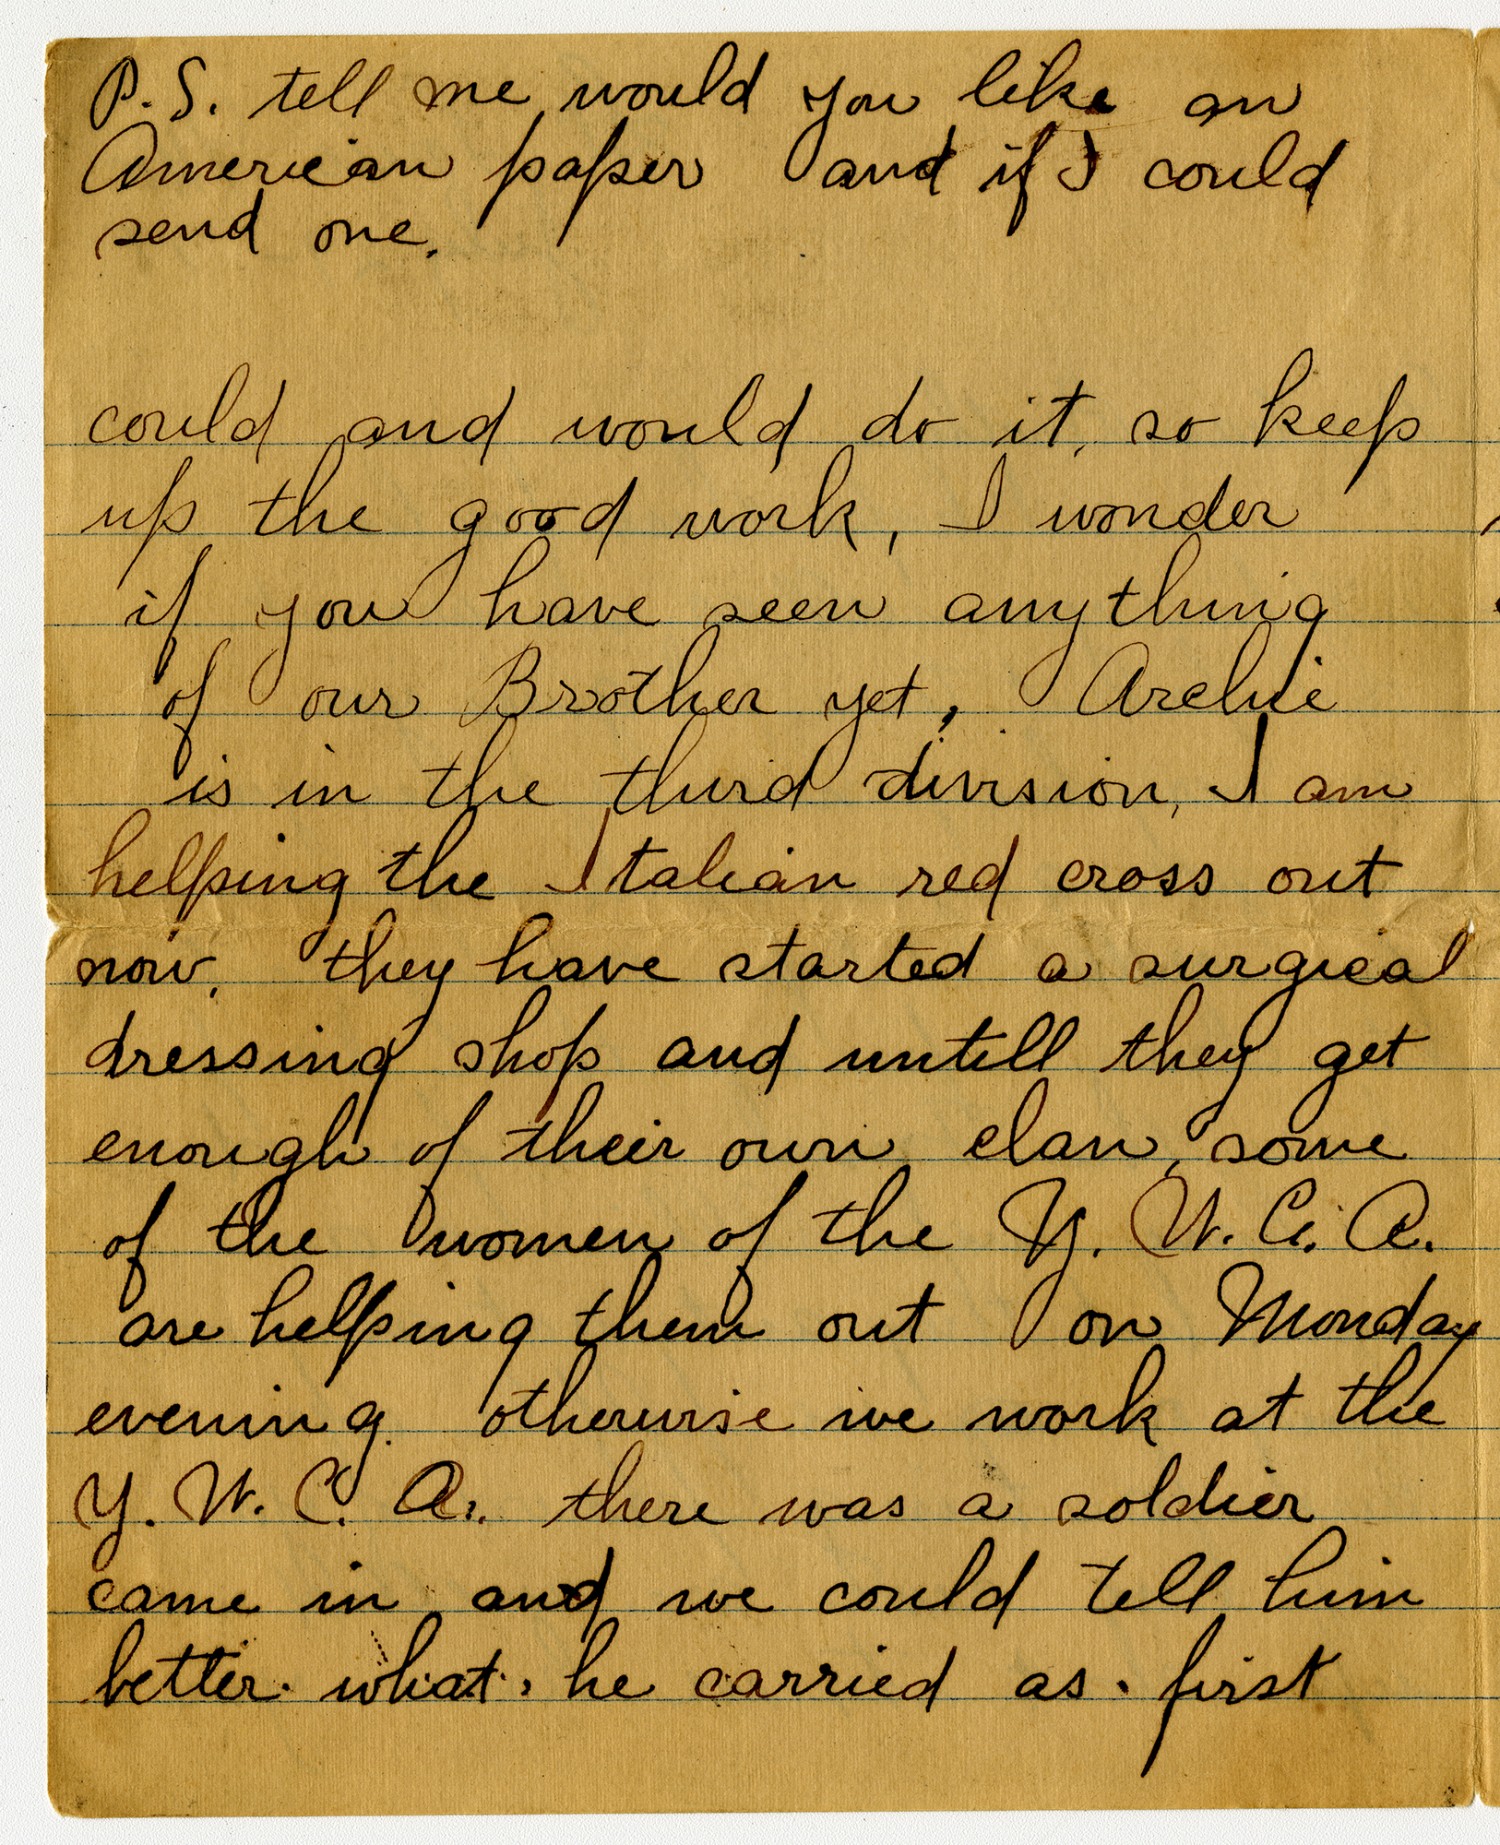 P.S. tell me would you like an
American paper and if I could
send one.
could and would do it, so keep
up the good work, I wonder
if you have seen anything
of our Brother yet, Archie
is in the third division, I am
helping the Italian red cross out
now, they have started a surgical
dressing shop and untill they get
enough of their own clan, some
of the women of the Y. W. C. A.
are helping them out on Monday
evening. otherwise we work at the
Y. W. C. A., there was a soldier
came in and we could tell him
better. what. he carried as. first